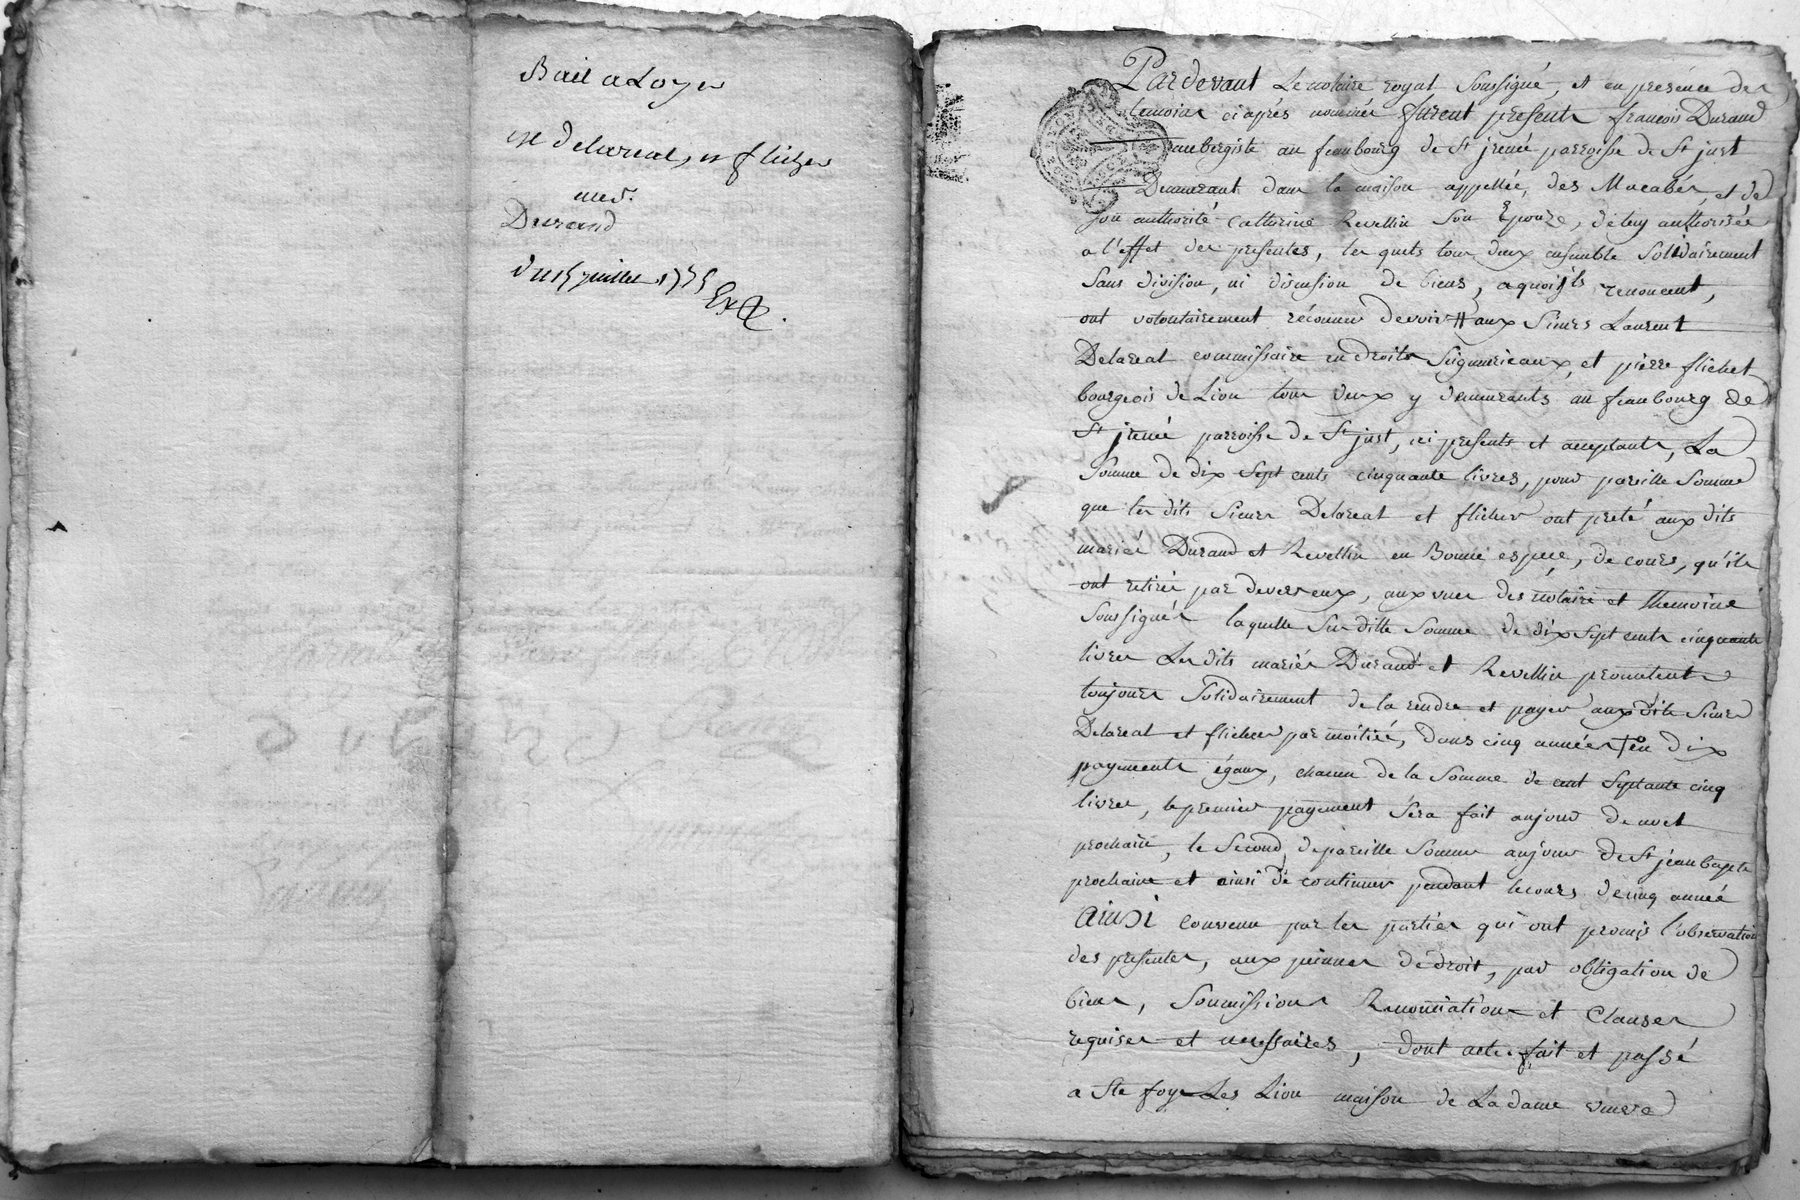 Bail a Loyer
Delareal, et flicher
Durand
du 15 juillet 1775
Pardevant Le notaire royal soussigné, et en presence des
temoins ci aprés nommés furent presents francois Durand
aubergiste au feaubourg de St jrenée parroisse de St just
Demeurant dans la maison appellée, des Macabés, et de
son authorité Catherine Revellin son Epouze, de luy authorisée
a l'effet des presentes, les quels tous deux ensemble solidairement
sans division, ni discusion de biens, a quoi ils renoncent,
ont volontairement réconnu devoir aux sieurs Laurent
Delareal commissaire en droits seigneuriaux, et pierre flichet
bourgeois de Lion tous deux y demeurants au feaubourg de
St jrenée parroisse de St just, ici presents et acceptants, La
somme de dix sept cents cinquante livres, pour pareille somme
que les dits sieurs Delareal et flicher ont preté aux dits
mariés Durand et Revellin en Bonne espece, de cours, qu'ils
ont retiré par devers eux, aux vues des notaire et themoins
soussignés laquelle susditte somme de dix sept cents cinquante
livres Les dits mariés Durand et Revellin promettent
toujours solidairement de la rendre et payer aux dits sieurs
Delareal et flicher par moitiée, dans cinq années en dix
payements égaux, chacun de la somme de cent septante cinq
livres, le premier payement sera fait au jour de noel
prochain, le second, de pareille somme au jour de St jean baptte
prochaine et ainsi de continuer pendant le cours de cinq année
Ainsi convenu par les parties qui ont promis l'observation
des presentes, aux peinnes de droit, par obligation de
biens, soumissions Renonciations et Clauses
requises et necessaires, dont acte fait et passé
a Ste foye Les Lion maison de La dame veuve